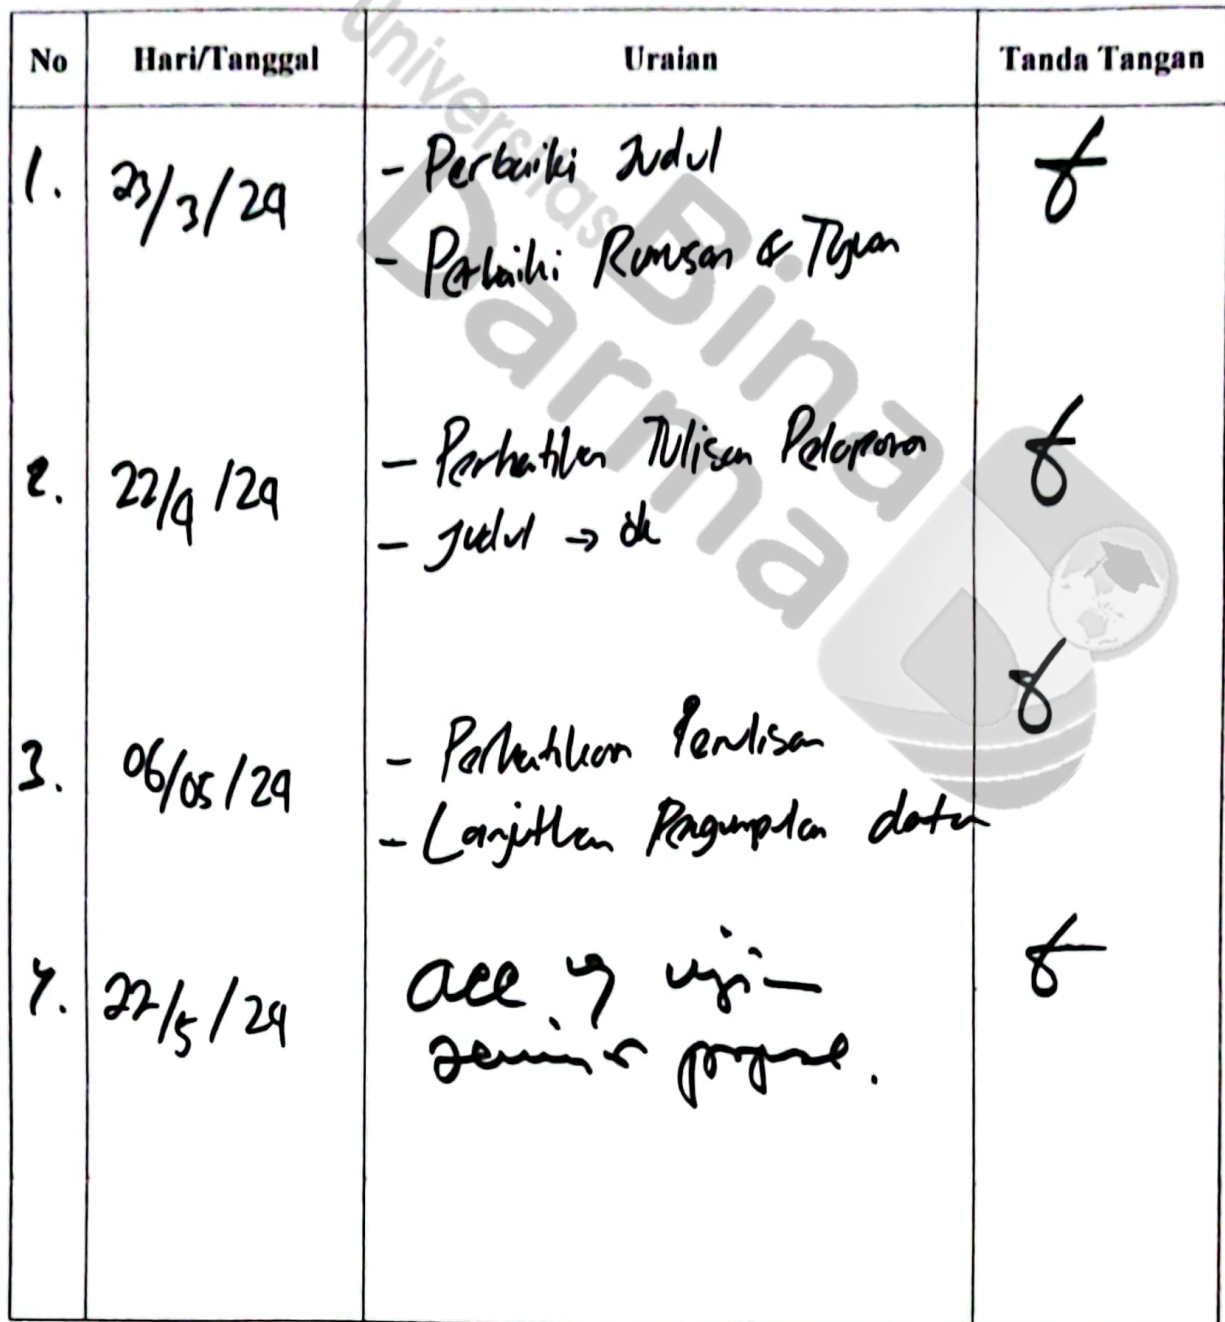 No Hari/Tanggal Uraian Tanda Tangan
Universitas
Bina
Darma
1. 23/3/24 - Perbaiki Judul
- Perbaiki Rumusan & Tujuan
2. 22/4/24 - Perhatikan Tulisan Pelaporan
- Judul → ok
3. 06/05/24 - Perhatikan Penulisan
- Lanjutkan Pengumpulan data
4. 22/5/24 acc ujian
seminar proposal.